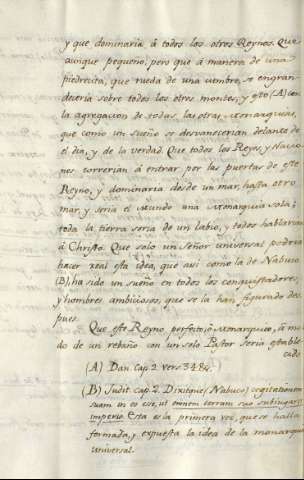 y que dominaria â todos los otros Reynos. Que
aunque pequeno, pero que á manera de una
piedrecita, que rueda de una cumbre, se engran
deceria sobre todos los otros montes, y esto (A) con
la agregacion de todas las otras Monarquias,
que como un sueño se desvanecerian delante de
el dia, y de la verdad. Que todos los Reyes, y Nacio
nes correrian á entrar por las puertas de este
Reyno, y dominaria desde un mar hasta otro
mar, y seria el Mundo una Monarquia sola;
toda la tierra seria de un labio, y todos hablarian
á Christo. Que solo un Señor universal podria
hacer real esta idea, que asi como la de Nabuco
(B) ha sido un sueño en todos los conquistadores,
y hombres ambiciosos, que se la han figurado des
pues.
Que este Reyno perfecto, ô Monarquia, â mo
do de un rebaño con un solo Pastor seria estable
cido
(A) Dan. Cap. 2 vers. 34 &.
(B) Judit. cap. 2. Dixitque (Nabuco) cogitationem
suam in eo esse, ut omnem terram suo subiugaret
imperio. Esta es la primera vez, que se halla
formada, y expuesta la idea de la monarquia
universal.